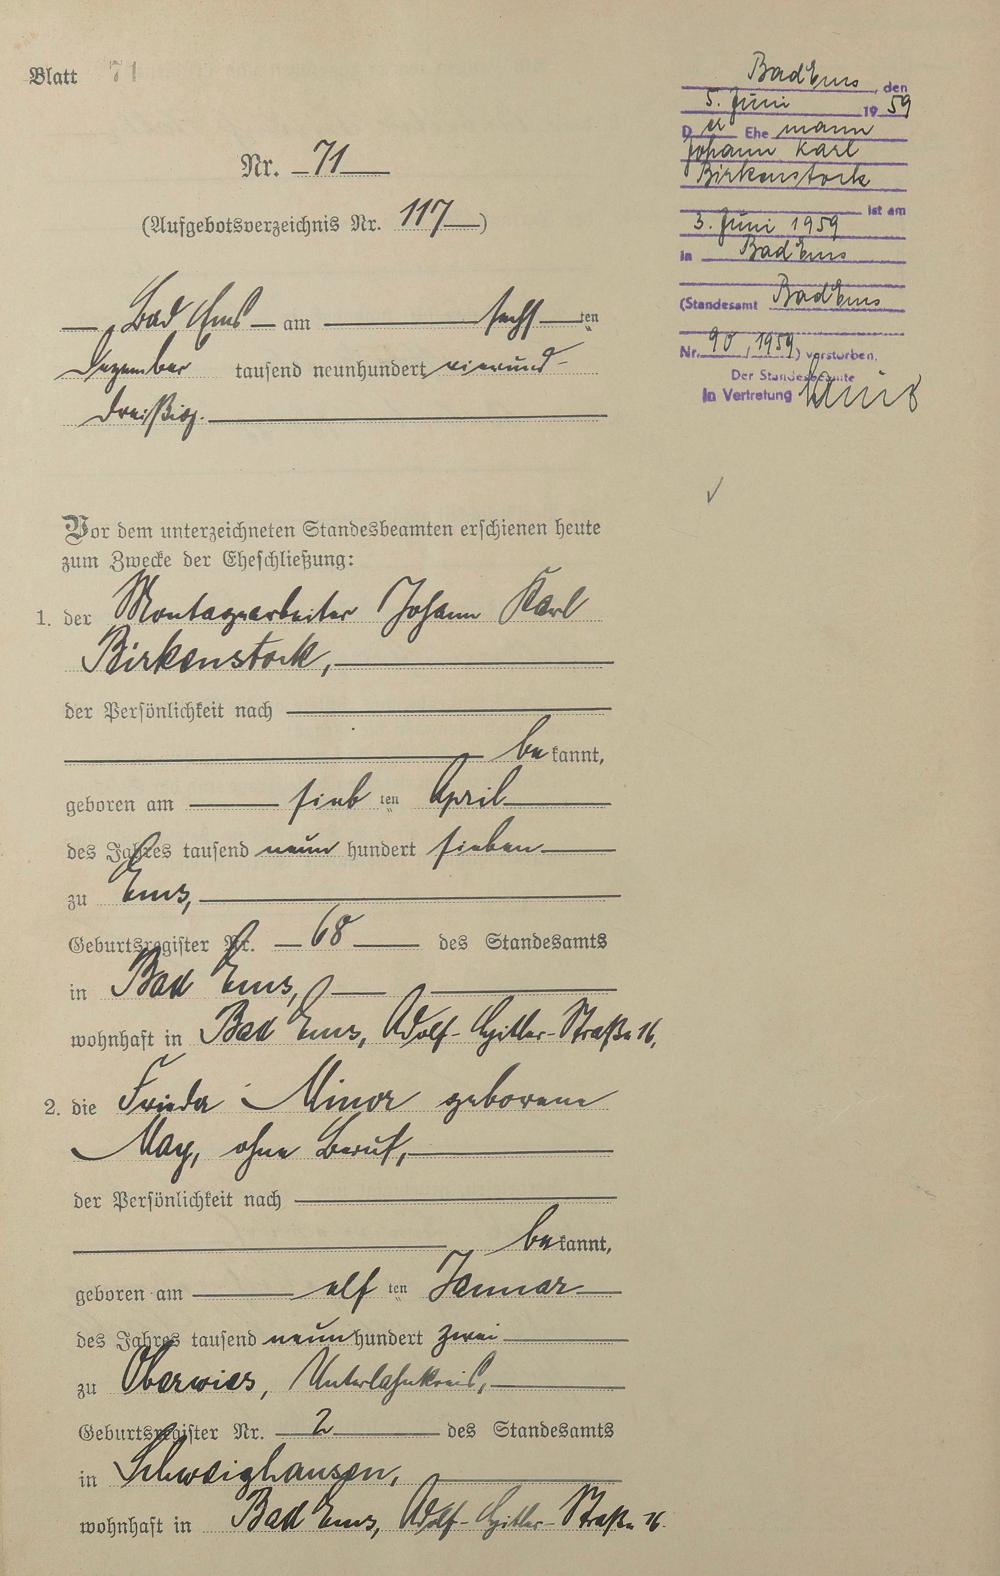 Blatt 71
Nr. 71
(Aufgebotsverzeichnis Nr. 117)
Bad Ems am sechsten
Dezember tausend neunhundert vierund-
dreißig.
Vor dem unterzeichneten Standesbeamten erschienen heute
zum Zwecke der Eheschließung:
1. der Montagearbeiter Johann Karl
Birkenstock,
der Persönlichkeit nach
bekannt,
geboren am siebten April
des Jahres tausend neun hundert sieben
zu Ems,
Geburtsregister Nr. 68 des Standesamts
in Bad Ems,
wohnhaft in Bad Ems, Adolf-Hitler-Straße 16,
2. die Frieda Minor geborene
May, ohne Beruf,
der Persönlichkeit nach
bekannt,
geboren am elften Januar
des Jahres tausend neunhundert zwei
zu Oberwies, Unterlahnkreis,
Geburtsregister Nr. 2 des Standesamts
in Schweighausen,
wohnhaft in Bad Ems, Adolf-Hitler-Straße 16.
Bad Ems, den
5. Juni 1959
Der Ehemann
Johann Karl
Birkenstock
ist am
3. Juni 1959
in Bad Ems
(Standesamt Bad Ems
Nr. 90, 1959) verstorben.
Der Standesbeamte
In Vertretung